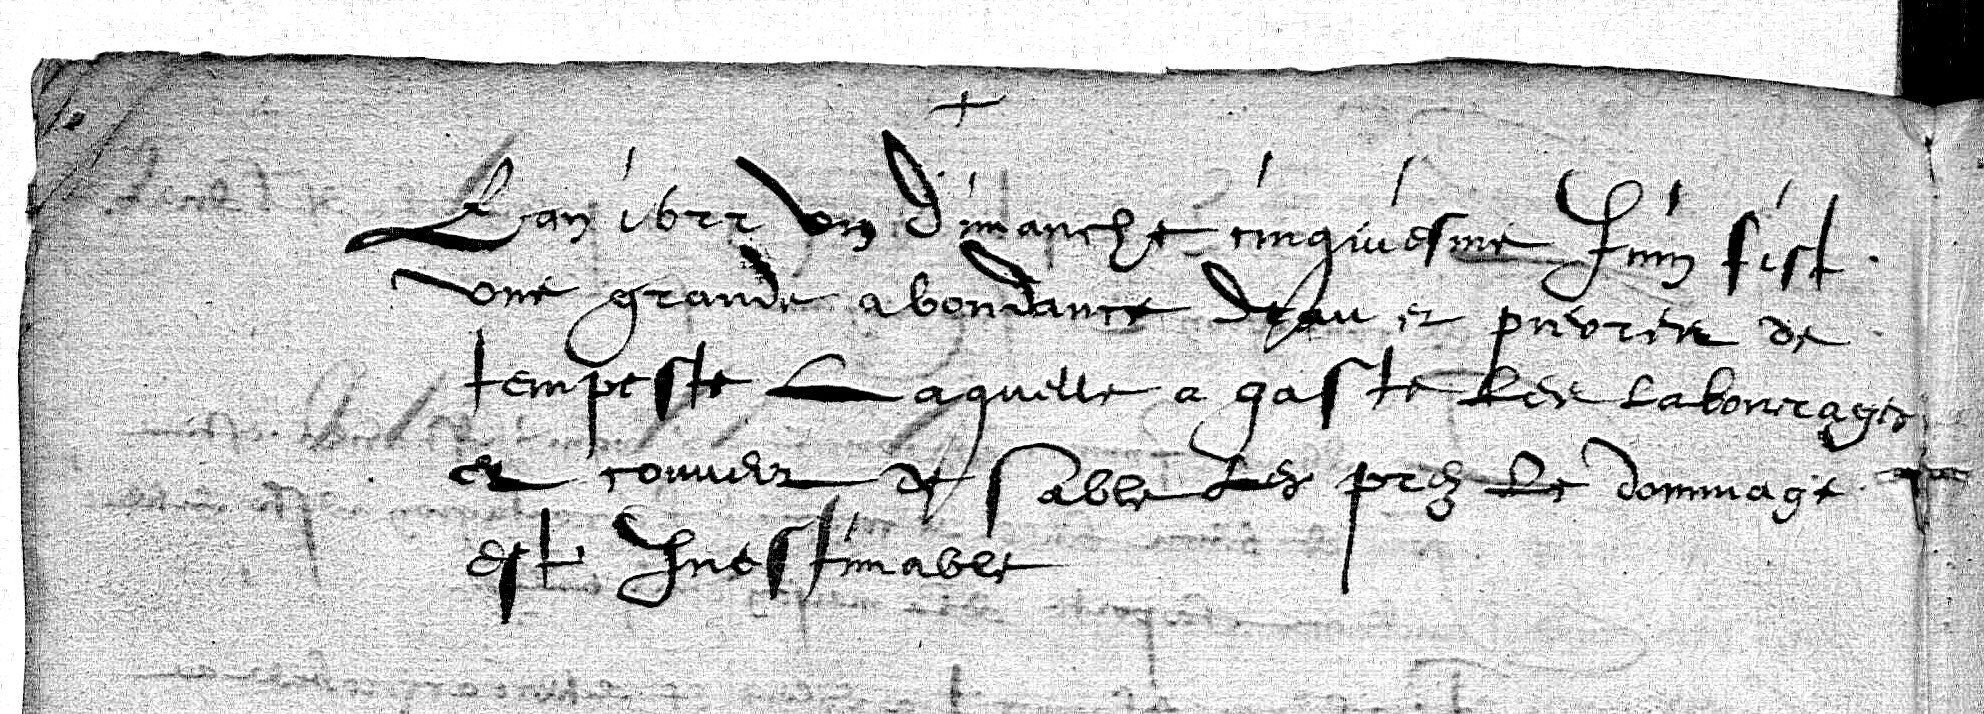 Lan 1622 un dimanche cinquiesme Juin fist
une grande abondance deau et de
tempeste Laquelle a gaste Les Labourages
et couvert de sable Les prez Le dommage
est Inestimable